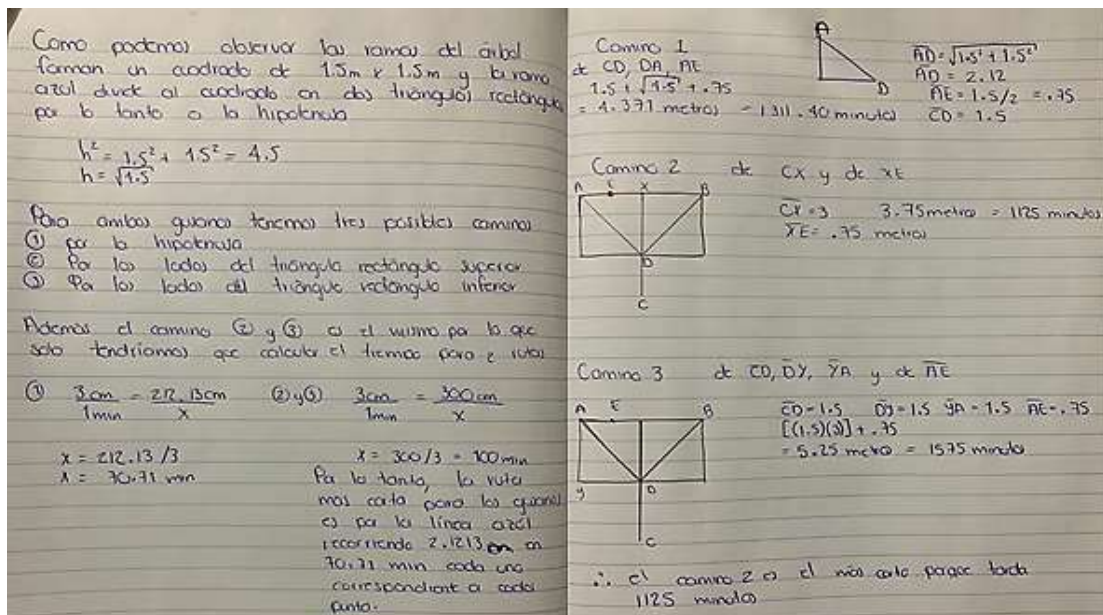 Como podemos observar las ramas del árbol
forman un cuadrado de 1.5m x 1.5m y la rama
azul divide al cuadrado en dos triángulos rectángulos
por lo tanto a la hipotenusa
h² = 1.5² + 1.5² = 4.5
h = √4.5
Para ambos gusanos tenemos tres posibles caminos
① por la hipotenusa
② Por los lados del triángulo rectángulo superior
③ Por los lados del triángulo rectángulo inferior
Ademas el camino ② y ③ es el mismo por lo que
solo tendríamos que calcular el tiempo para 2 rutas
① 3cm/1min = 212.13cm/x
x = 212.13/3
x = 70.71 min
② y ③ 3cm/1min = 300cm/x
x = 300/3 = 100min
Por lo tanto, la ruta
mas corta para los gusanos
es por la línea azul
recorriendo 2.1213 en
70.71 min cada uno
correspondiente a cada
punto.
Camino 1
de CD, DA, AE
1.5 + √4.5 + .75
= 4.371 metros = 1311.40 minutos
A
D
AD = √1.5² + 1.5²
AD = 2.12
AE = 1.5/2 = .75
CD = 1.5
Camino 2 de CX y de XE
A E X B
D
C
CX = 3 3.75 metros = 1125 minutos
XE = .75 metros
Camino 3 de CD, DY, YA y de AE
A E B
Y D
C
CD = 1.5 DY = 1.5 YA = 1.5 AE = .75
[(1.5)(3)] + .75
= 5.25 metro = 1575 minutos
∴ el camino 2 es el más corto porque tarda
1125 minutos